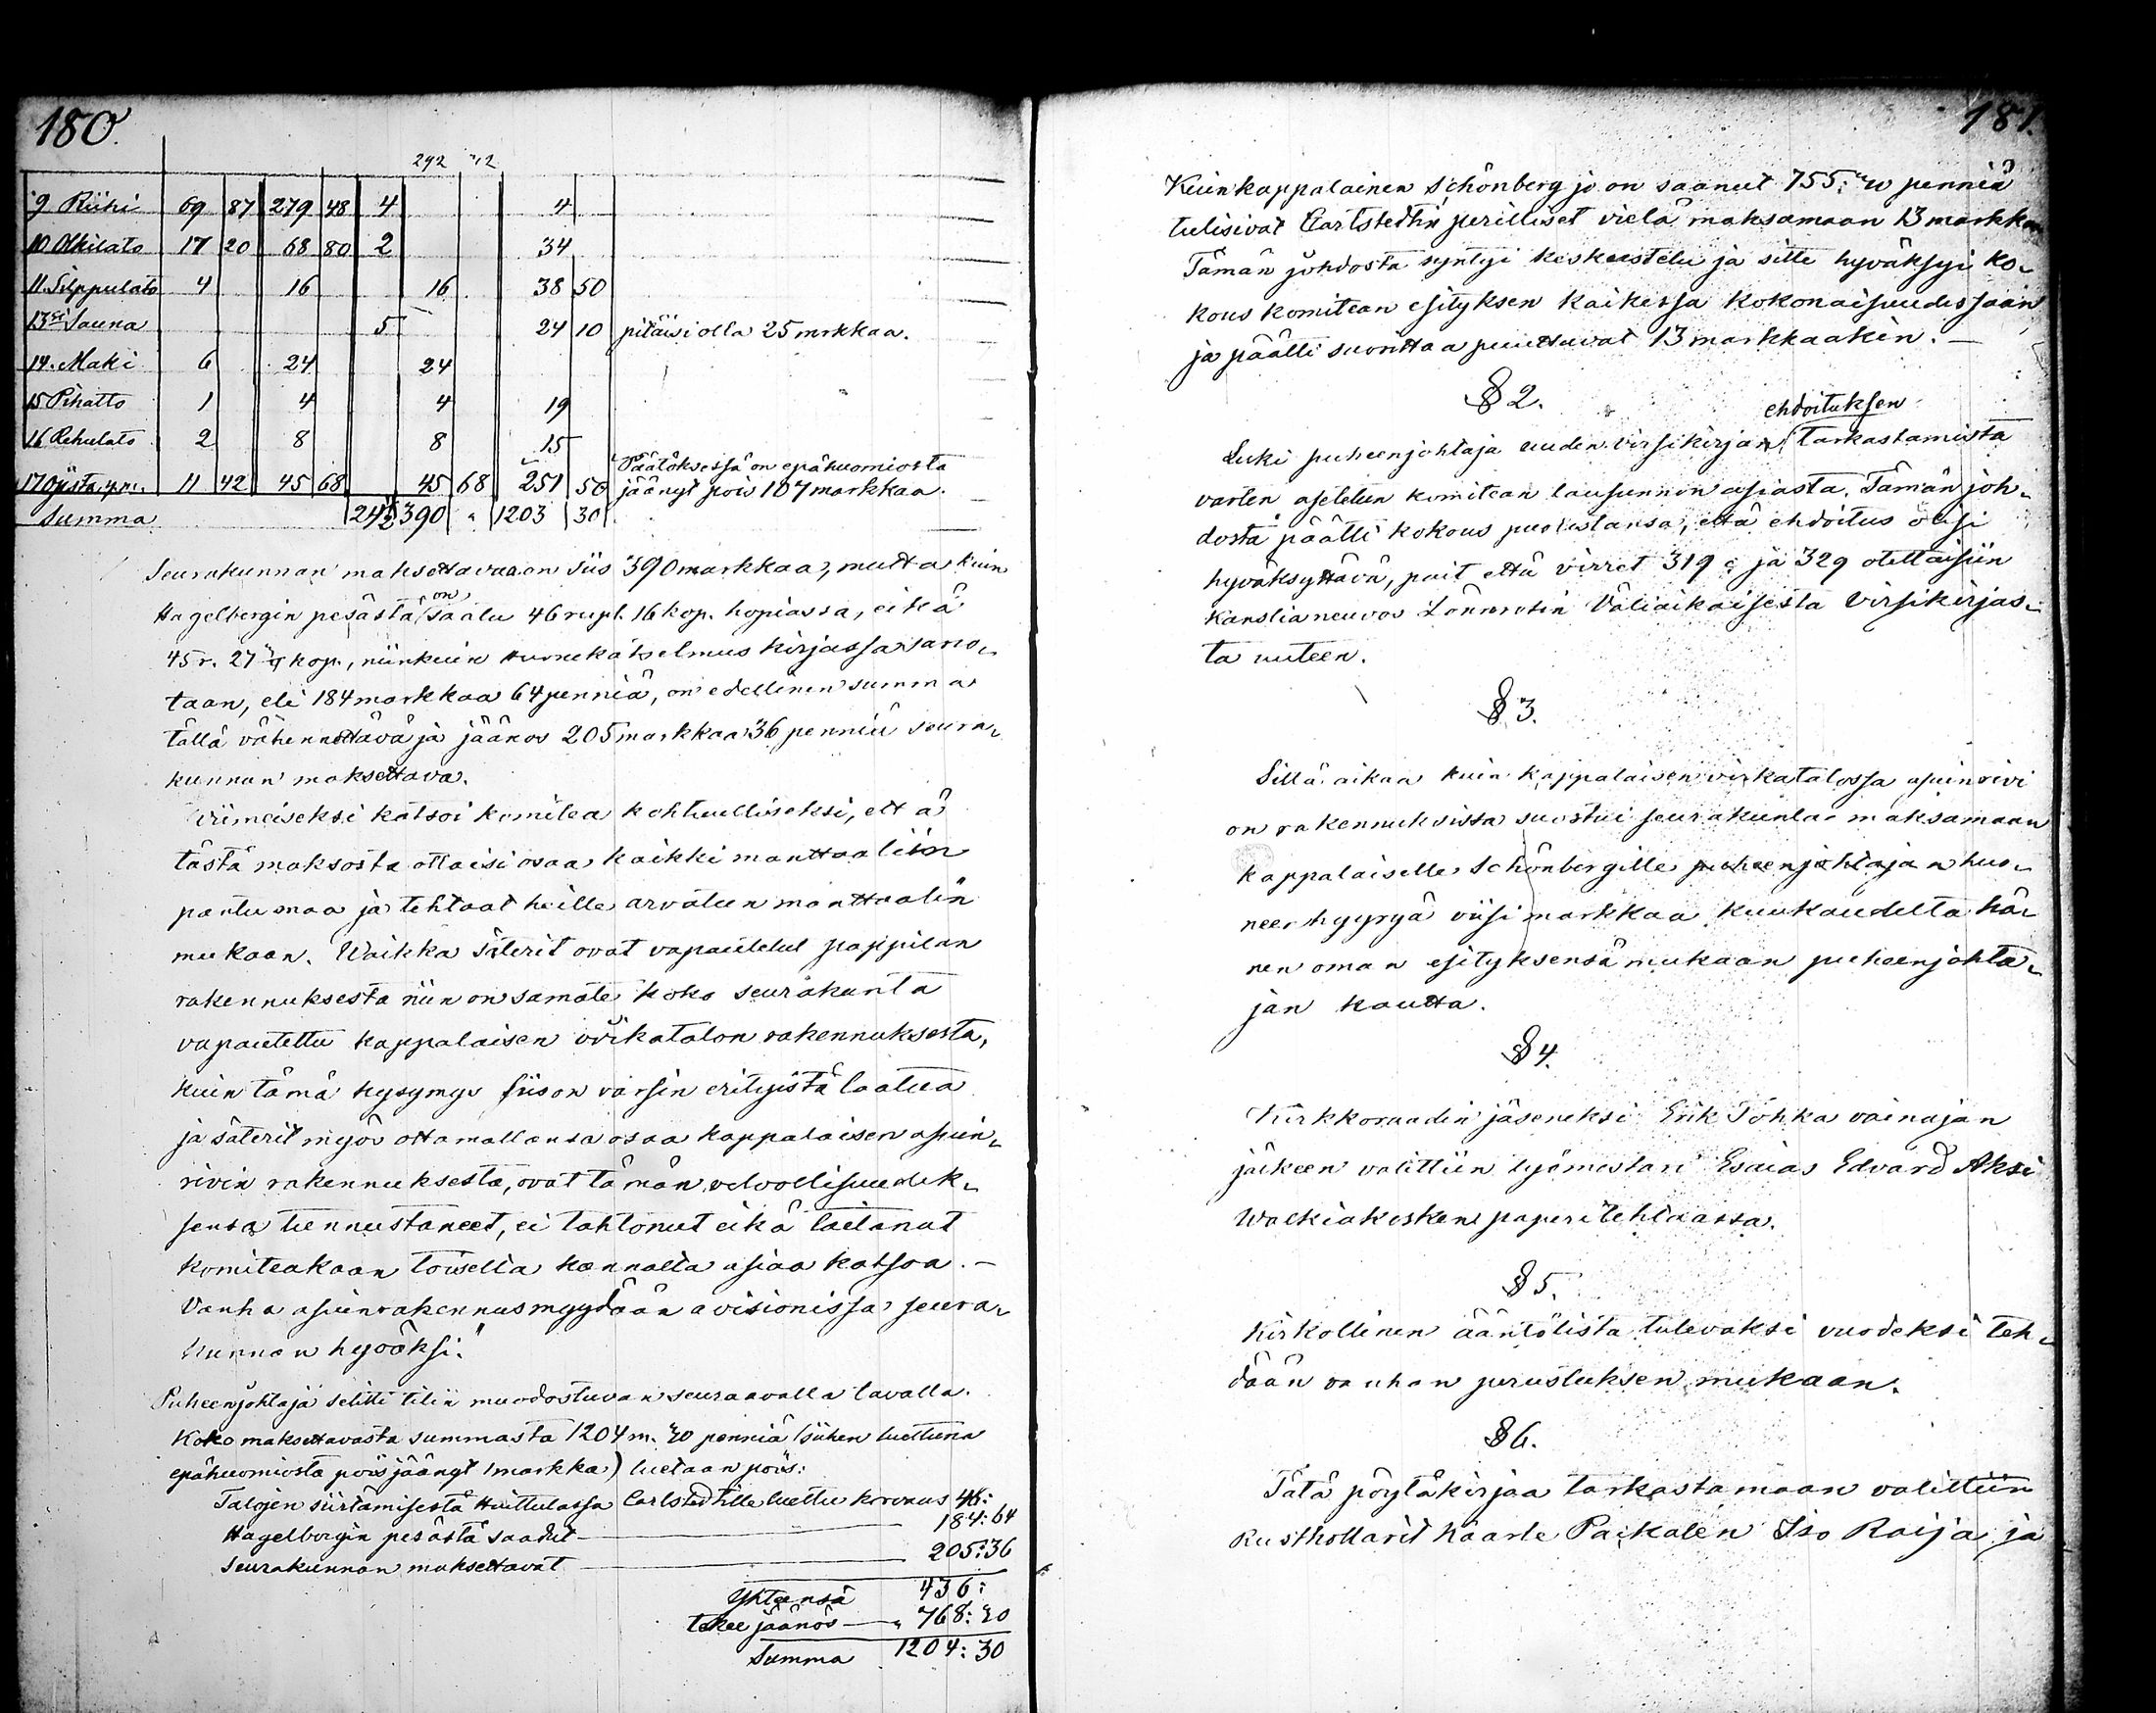 180.
292 "12
9 Riihi 69 87 279 48 4 4
10 Olkilato 17 20 68 80 2 34
11. Silppulato 4 16 16 38 50
13 si Sauna 5 24 10 pitäisi olla 25 markkaa.
14. Maki 6 24 24
15 Pihatto 1 4 4 19
16 Rehulato 2 8 8 15
Päätöksessä on epähuomiosta
17 Ojista y.m. 11 42 45 68 45 68 251 50 jäänyt pois 107 markkaa.
Summa 242 390 " 1203 30
Seurakunnan maksettavaa on siis 390 markkaa, mutta kuin
on
Hagelbergin pesästä saalu 46 rupl. 16 kop. hopiassa, eikä
45 r. 27 kop., niinkuin Huonekatselmus kirjassa sano-
taan, eli 184 markkaa 64 penniä, on edellinen summa
tällä vähennettävä ja jäänös 205 markkaa 36 penniä seura-
kunnan maksettava.
Viimeiseksi katsoi komitea kohtuulliseksi, että
tästä maksosta ottaisi osaa kaikki manttaaliin
pantu maa ja tehtaat heille arvatun manttaalin
mukaan. Waikka säterit ovat vapautetut pappilan
rakennuksesta niin on samate koko seurakunta
vapautettu kappalaisen virkatalon rakennuksesta,
kuin tämä kysymys siis on varsin erityistä laatua
ja säterit myös ottamallansa osaa kappalaisen asuin-
rivin rakennuksesta, ovat tämän velvollisuudek-
sensa tunnustaneet, ei tahtonut eikä taitanut
komiteakaan toisella kannalta asiaa katsoa. —
Vanha asuinrakennus myydään avisionissa seura-
kunnan hyväksi."
Puheenjohtaja selitti tilin muodostuvan seuraavalla tavalla.
Koko maksettavasta summasta 1204 m. 30 penniä (siihen luettuna
epähuomiosta pois jäänyt 1 markka) luetaan pois:
Talojen siirtämisestä Huittulassa Carlstedtille luettu korvaus 46:
Hagelbergin pesästä saadut — 184:64
Seurakunnan maksettavat — 205:36
Yhteensä 436:
tekee jäänös — " 768:30
Summa 1204:30
181.
Kuin kappalainen Schönberg jo on saanut 755: 30 penniä
tulisivat Carlstedtin perilliset vielä maksamaan 13 markkaa
Tämän johdosta syntyi keskustelu ja sitte hyväksyi ko-
kous komitean esityksen kaikessa kokonaisuudessaan
ja päätti suorittaa puuttuvat 13 markkaakin. —
§ 2.
ehdoituksen
Luki puheenjohtaja uuden virsikirjan tarkastamista
varten asetetun komitean lausunnon asiasta. Tämän joh-
dosta päätti kokous puolustansa, että ehdoitus olisi
hyväksyttävä, pait että virret 319 ja 329 otettaisiin
Kanslianeuvos Lönnrotin Väliaikaisesta Virsikirjas-
ta uuteen.
§ 3.
Sillä aikaa kuin kappalaisen virkatalossa asuinrivi
on rakennuksissa suostui seurakunta maksamaan
kappalaiselle Schönbergille puheenjohtajan huo-
neer hyyryä viisi markkaa kuukaudelta hä-
nen oman esityksensä mukaan puheenjohta-
jan kautta.
§ 4.
Kirkkoraadin jäseneksi Erik Tohka vainajan
jälkeen valittiin työmestari Esaias Edvard Aksi
Walkiakosken paperitehtaassa.
§ 5.
Kirkollinen ääntölista tulevaksi vuodeksi teh-
dään vanhan perustuksen mukaan.
§ 6.
Tätä pöytäkirjaa tarkastamaan valittiin
Rusthollarit Kaarle Paikalen Iso Raija ja